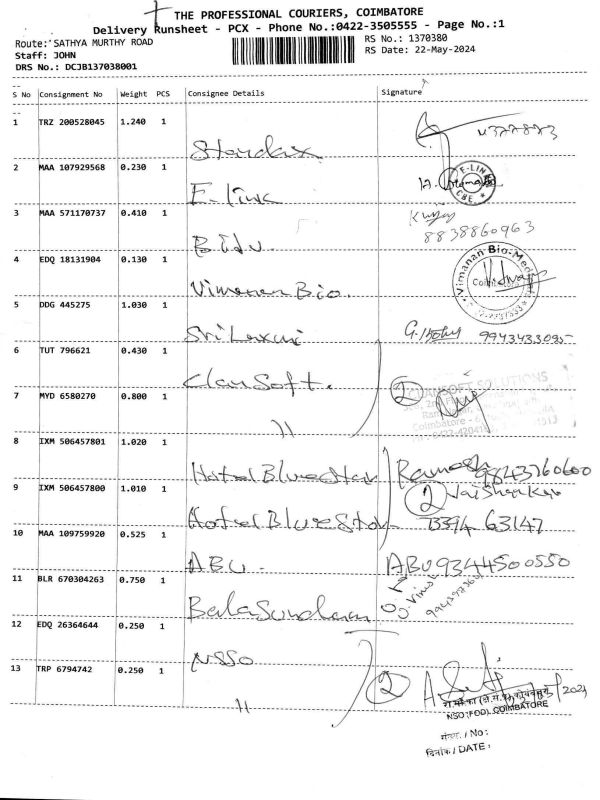 THE PROFESSIONAL COURIERS, COIMBATORE
Delivery Runsheet - PCX - Phone No.:0422-3505555 - Page No.:1
Route: SATHYA MURTHY ROAD
RS No.: 1370380
Staff: JOHN
RS Date: 22-May-2024
DRS No.: DCJB137038001
S No Consignment No Weight PCS Consignee Details Signature
1 TRZ 200528045 1.240 1
2 MAA 107929568 0.230 1 E-line
E-LINE
CBE.
3 MAA 571170737 0.410 1 Bidu.
8838860963
4 EDQ 18131904 0.130 1 Vimanan Bio.
Vimanan Bio-Med
5 DDG 445275 1.030 1 Sri Laxmi
6 TUT 796621 0.430 1 Clansoft.
7 MYD 6580270 0.800 1 11
2
CLANSOFT SOLUTIONS
8 IXM 506457801 1.020 1 Hotel Bluestar Ramesh 9843760600
9 IXM 506457800 1.010 1 Hotel Bluestar
2 Jai Shankar
73394 63147
10 MAA 109759920 0.525 1 ABU. ABU 9344500550
11 BLR 670304263 0.750 1 Balasundaram
12 EDQ 26364644 0.250 1 NSSO
13 TRP 6794742 0.250 1 11
2
NSO (FOD) COIMBATORE
संख्या. / No:
दिनांक / DATE: